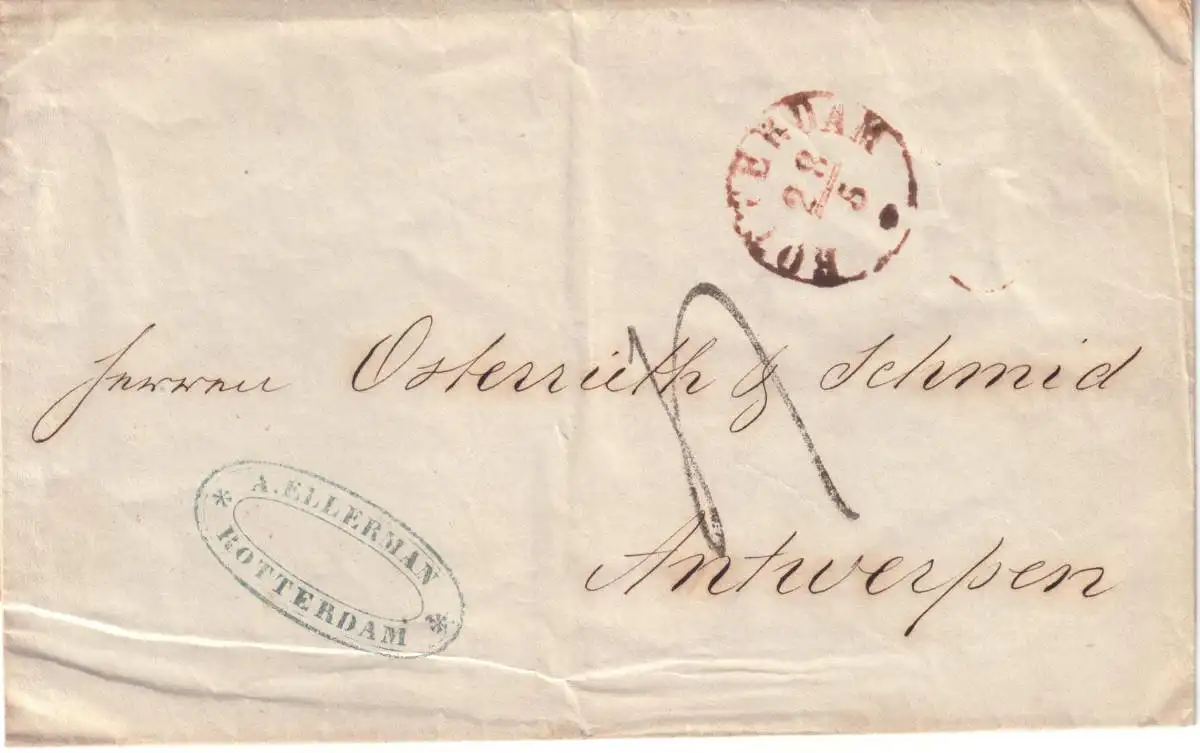 ROTTERDAM
28
5
Herren Osterrieth & Schmid
A. ELLERMAN
ROTTERDAM
Antwerpen